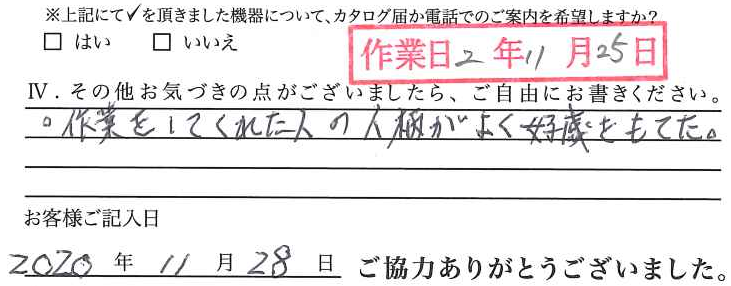 ※上記にて✓を頂きました機器について、カタログ届か電話でのご案内を希望しますか？
□ はい □ いいえ
作業日2年11月25日
Ⅳ．その他お気づきの点がございましたら、ご自由にお書きください。
。作業をしてくれた人の人柄がよく好感をもてた。
お客様ご記入日
2020 年 11 月 28 日 ご協力ありがとうございました。